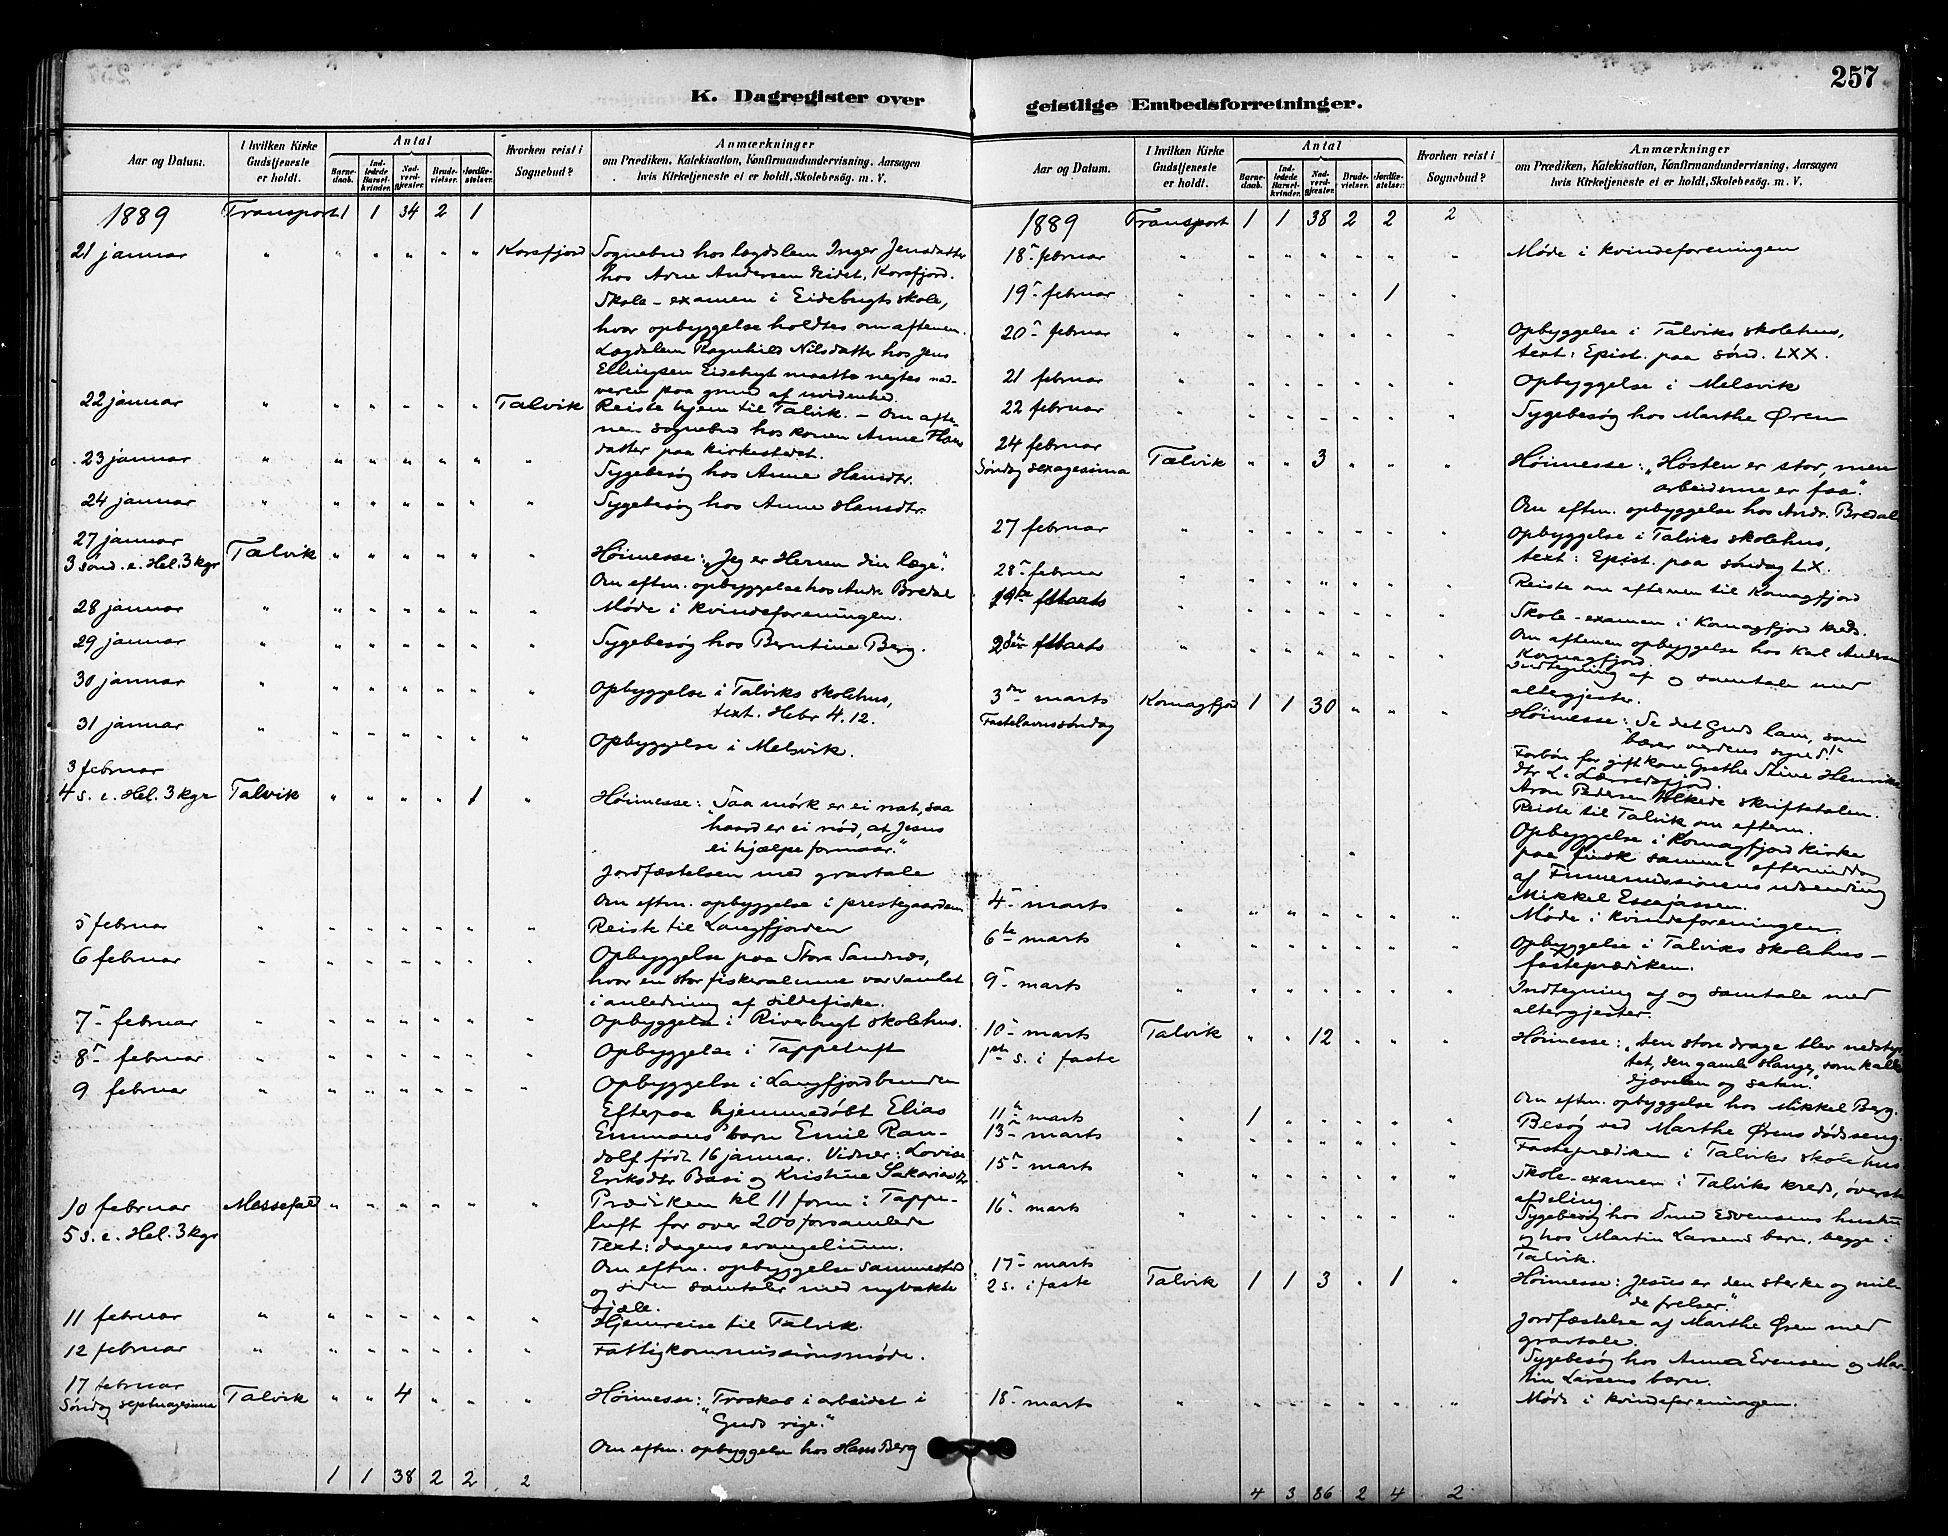 257
K. Dagregister over geistlige Embedsforretninger.
Aar og Datum.
I hvilken Kirke Gudstjeneste er holdt.
Antal
Barnedaab.
Indledede Barselkvinder.
Nadverdgjester.
Brudevielser.
Jordfæstelser.
Hvorhen reist i Sognebud?
Anmærkninger
om Prædiken, Katekisation, Konfirmandundervisning, Aarsagen
hvis Kirketjeneste ei er holdt, Skolebesøg. m. V.
1889 Transport 1 1 34 2 1
21 januar " " " " " " Korsfjord Sognebud hos lægdslem Inger Jensdatter
hos Arne Andersen, Korsfjord.
Skole-examen i Eidebugt skole,
hvor opbyggelse holdtes om aftenen.
Lægdslem Ragnhild Nilsdatter hos Jens
Ellingsen Eidebugt maatte negtes nad-
veren paa grund af uvidenhed.
22 januar " " " " " " Talvik Reiste hjem til Talvik. – Om afte-
nen sognebud hos konen Anne Hans
datter paa kirkestedet.
23 januar " " " " " " " Sygebesøg hos Anne Hansdtr.
24 januar " " " " " " " Sygebesøg hos Anne Hansdtr.
27 januar
3 sønd. e. Hel. 3 kgr Talvik " " " " " " Høimesse: "Jeg er Herren din læge".
Om eftm. opbyggelse hos Andr. Bredal
28 januar " " " " " " " Møde i kvindeforeningen.
29 januar " " " " " " " Sygebesøg hos Berntine Berg.
30 januar " " " " " " " Opbyggelse i Talviks skolehus,
text. Hebr 4. 12.
31 januar " " " " " " " Opbyggelse i Melsvik.
3 februar
4 s. e. Hel. 3 kgr Talvik " " " " 1 " Høimesse: "Saa mørk er ei nat, saa
haard er ei nød, at Jesus
ei hjælpe formaar."
Jordfæstelsen med gravtale
Om eftm. opbyggelse i prestegaarden
5 februar " " " " " " " Reiste til Langfjorden
6 februar " " " " " " " Opbyggelse paa Stora Sandnes,
hvor en stor fiskeralmue var samlet
i anledning af sildefiske.
7 februar " " " " " " " Opbyggelse i Riverbugt skolehus.
8 februar " " " " " " " Opbyggelse i Tappeluft
9 februar " " " " " " " Opbyggelse i Langfjordbunden
Efterpaa hjemmedøbt Elias
Emmaus' barn Emil Ran-
dolf født 16 januar. Vidner: Lovise
Eriksdtr Basi og Kristine Sakariasdtr
10 februar Messefald " " " " " " Prædiken kl 11 form i Tappe-
5 s. e. Hel. 3 kgr luft for over 200 forsamlede
Text: dagens evangelium.
Om eftm. opbyggelse sammesteds
og siden samtaler med nyvakte
sjæle.
11 februar " " " " " " " Hjemreise til Talvik.
12 februar " " " " " " " Fattigkommissionsmøde.
17 februar
Søndag septuagesima Talvik " " 4 " " " Høimesse: "Troskab i arbeidet i
Guds rige."
Om eftm. opbyggelse hos Hans Berg
1 1 38 2 2 2
Aar og Datum.
I hvilken Kirke Gudstjeneste er holdt.
Antal
Barnedaab.
Indledede Barselkvinder.
Nadverdgjester.
Brudevielser.
Jordfæstelser.
Hvorhen reist i Sognebud?
Anmærkninger
om Prædiken, Katekisation, Konfirmandundervisning, Aarsagen
hvis Kirketjeneste ei er holdt, Skolebesøg. m. V.
1889 Transport 1 1 38 2 2 2
18 februar " " " " " " " Møde i kvindeforeningen
19 februar " " " " " 1 "
20 februar " " " " " " " Opbyggelse i Talviks skolehus,
text: Epist. paa sønd. LXX.
21 februar " " " " " " " Opbyggelse i Melsvik
22 februar " " " " " " " Sygebesøg hos Marthe Øren
24 februar
Søndag sexagesima Talvik " " 3 " " " Høimesse: "Høsten er stor, men
arbeiderne er faa".
Om eftm. opbyggelse hos Andr. Bredal
27 februar " " " " " " " Opbyggelse i Talviks skolehus,
text: Epist. paa søndag LX.
28 februar " " " " " " " Reiste om aftenen til Komagfjord
1ste Marts " " " " " " " Skole-examen i Komagfjord kreds.
Om aftenen opbyggelse hos Karl Andersen
Komagfjord.
2den Marts " " " " " " " Indtegning af og samtale med
altergjester.
3die marts Komagfjord 1 1 30 " " "
Fastelavnssøndag
Høimesse: "Se det Guds lam, som
bærer verdens synd!"
Forbøn for gift kone Grethe Stine Henriks
dtr L. Lærredsfjord.
Aron Pedersen tolkede skriftetalen.
Reiste til Talvik om efterm.
Opbyggelse i Komagfjord kirke
paa finsk samme eftermiddag
af Finnemissionens udsending
Mikkel Essejassen.
4 marts " " " " " " " Møde i kvindeforeningen.
6te marts " " " " " " " Opbyggelse i Talviks skolehus –
fasteprædiken.
9 marts " " " " " " " Indtegning af og samtale med
altergjester.
10 marts Talvik " " 12 " " "
1ste s. i faste
Høimesse: "Den store drage blev nedstyr
tet, den gamle slange, som kaldes
djævelen og satan."
Om eftm. opbyggelse hos Mikkel Berg.
11te marts " 1 " " " " " Besøg ved Marthe Ørens dødsseng.
13 marts " " " " " " " Fasteprædiken i Talviks skolehus.
15 marts " " " " " " " Skole-examen i Talviks kreds, øverste
afdeling.
16 marts " " " " " " " Sygebesøg hos Smed Evensens hustru
og hos Martin Larsens barn, begge i
Talvik.
17 marts
2 s. i faste Talvik 1 1 3 " 1 " Høimesse: "Jesus er den sterke og mil-
de frelser".
Jordfæstelse af Marthe Øren med
gravtale.
Sygebesøg hos Anna Evensen og Mar-
tin Larsens barn.
18 marts " " " " " " " Møde i kvindeforeningen.
4 3 86 2 4 2